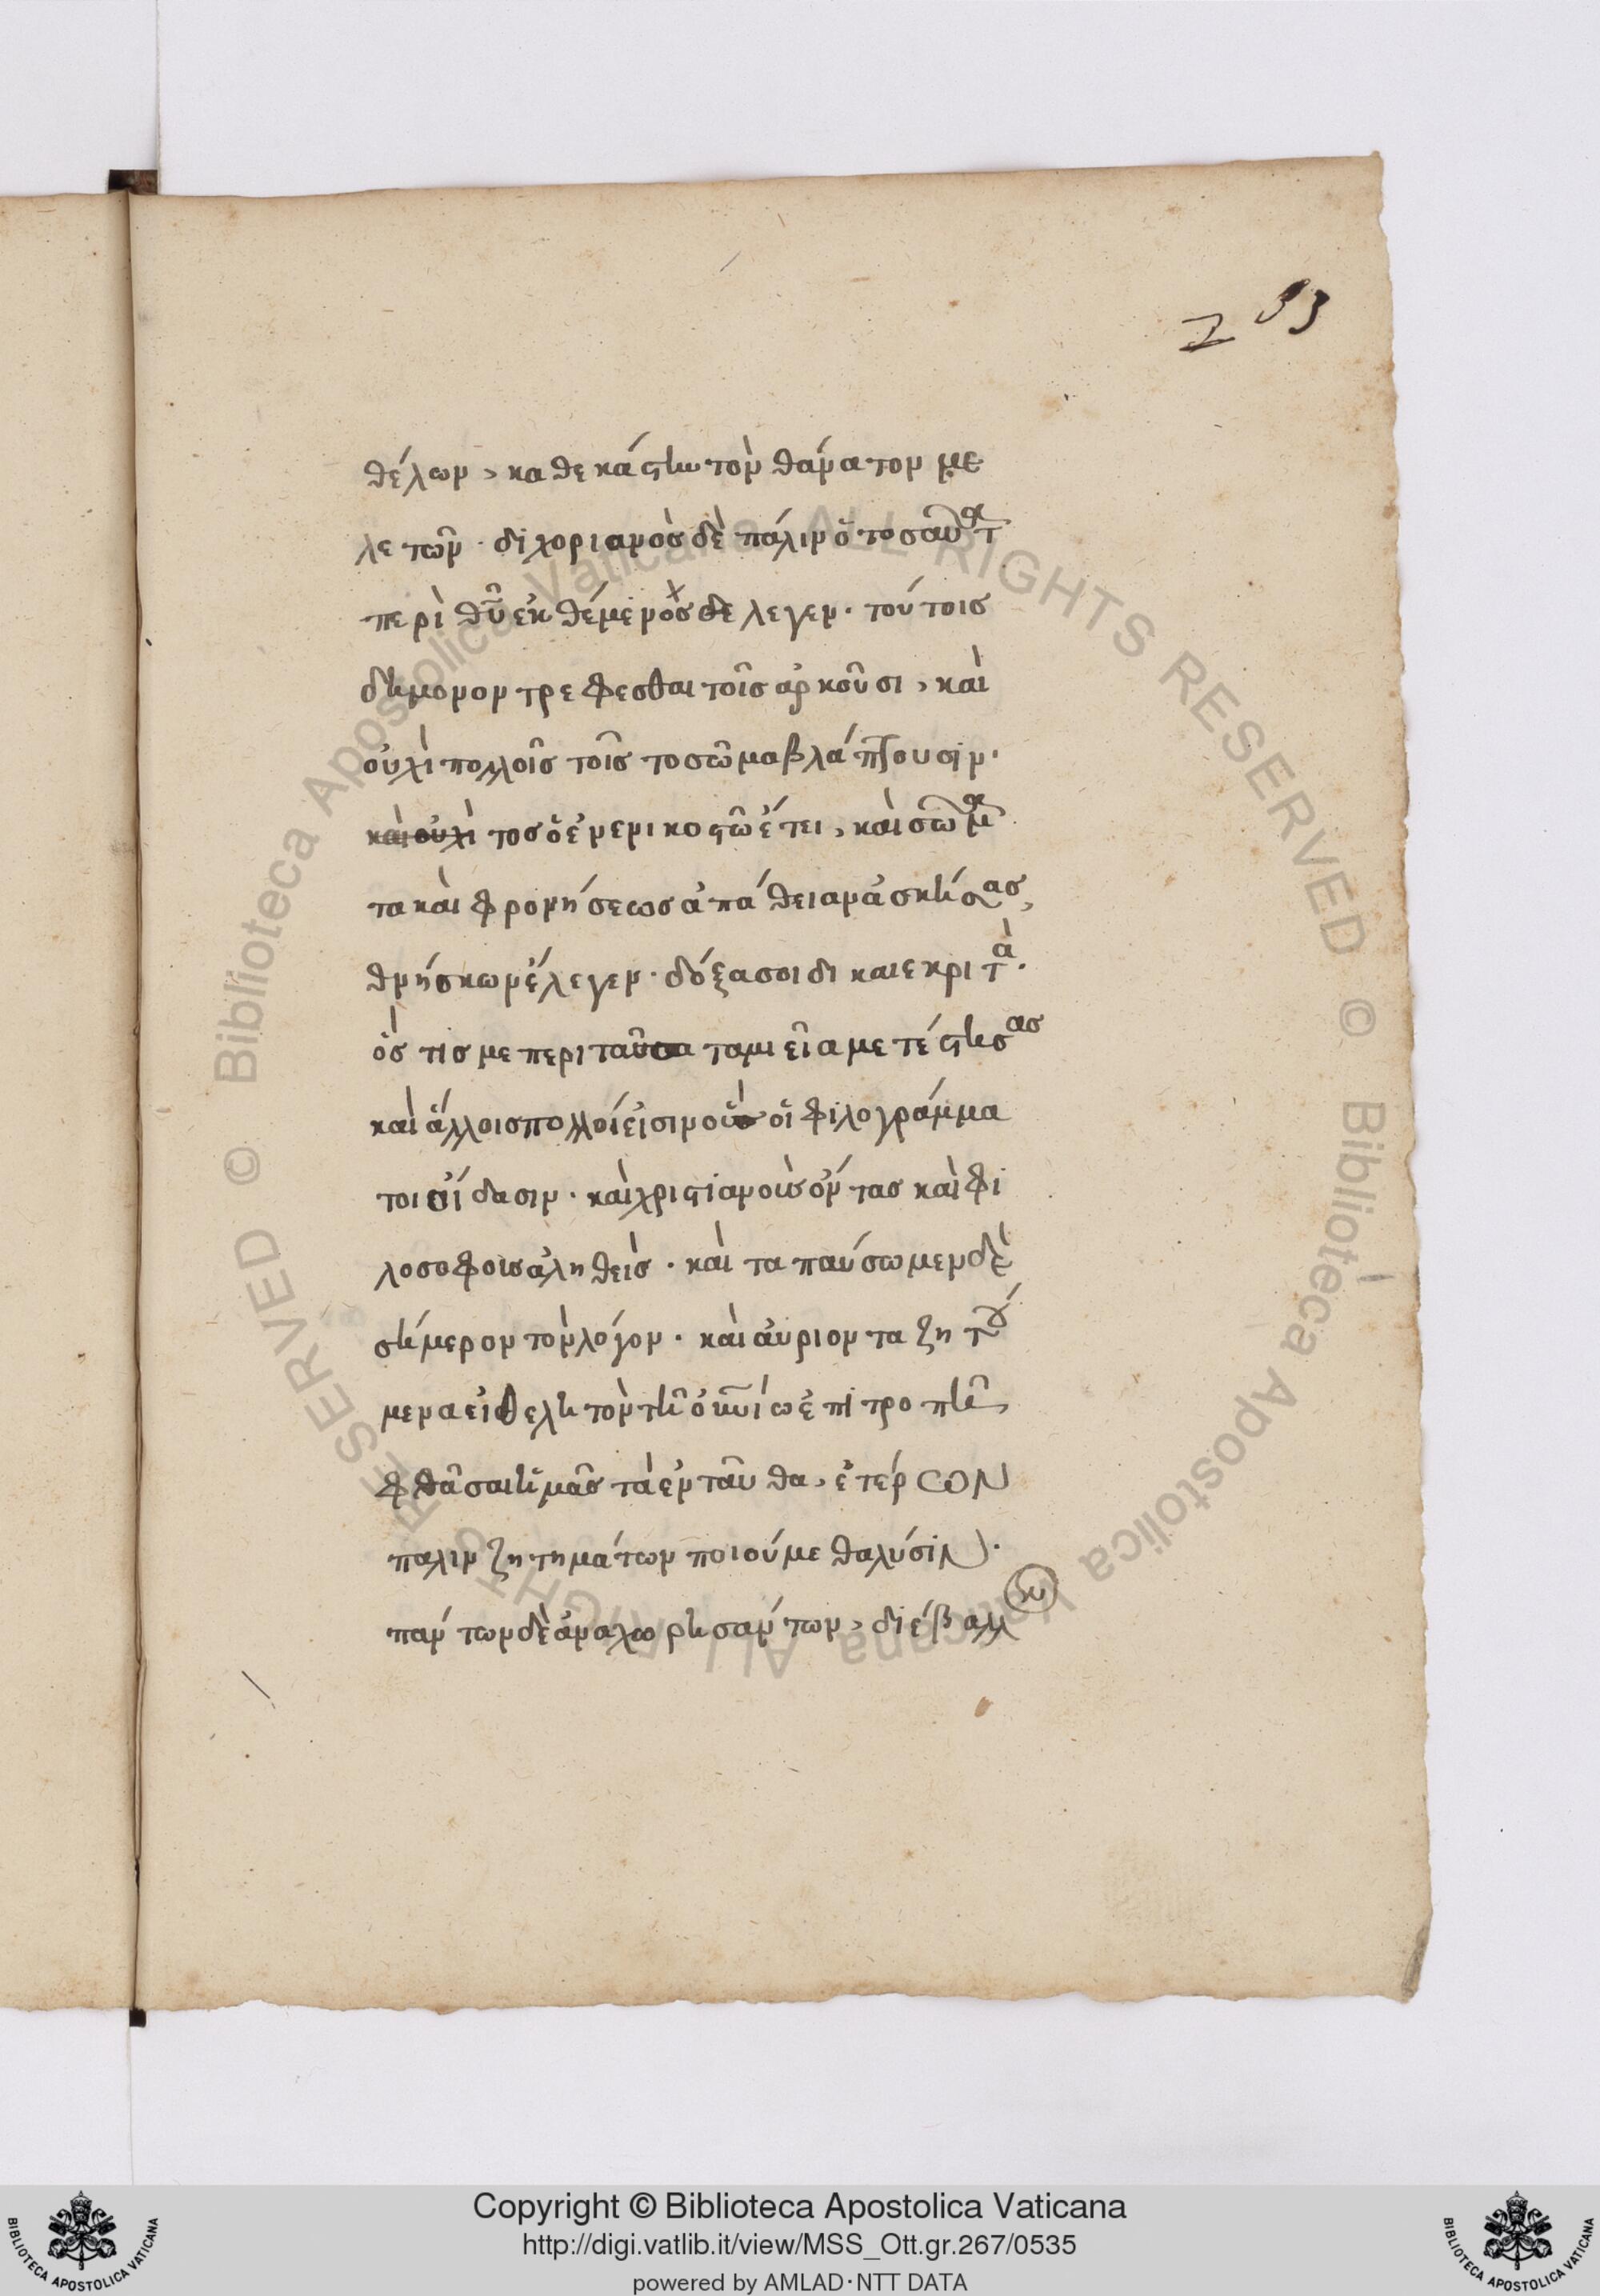 253
θέλων, καθεκάστην τὸν θάνατον με
λετῶν. διχοριανὸς δὲ πάλιν ὁ τοσαῦτα
περὶ θῦ ἐκθέμενος ἔλεγεν. τούτοις
δὴ μονον τρεφεσθαι τοῖς ἀρκοῦσι, καὶ
οὐχὶ πολλοῖς τοῖς το σῶμα βλάπτουσιν.
καὶ οὐχὶ τοσδε ἐνενικοστῶ ἔτει, καὶ σώμα
τα καὶ φρονήσεως ἀπάθειαν ἀσκήσας,
θνήσκων ἔλεγεν. δόξα σοι δικαιε κριτά.
ὅς τις με περι ταῦτα ταμιεῖα μετέστησας
καὶ ἄλλοις πολλοί εἰσιν οὓς οἱ φιλογράμμα
τοι οἴδασιν. καὶ χριστιανοὺς ὄντας καὶ φι
λοσοφοις ἀληθεῖς. καὶ τα παύσωμεν δὲ
σήμερον τὸν λόγον. καὶ ἀυριον τα ζητού
μενα εἰ θελητον τῆ ὁκνίω ἐπιτροπῆ,
φθᾶσαι ἡμᾶς τὰ ἐνταῦθα, ἑτέρων
παλιν ζητημάτων ποιούμεθα λύσιν.
πάντων δὲ ἀναχωρησάντων, διέβαλλον
Copyright © Biblioteca Apostolica Vaticana
http://digi.vatlib.it/view/MSS_Ott.gr.267/0535
powered by AMLAD·NTT DATA
BIBLIOTECA APOSTOLICA VATICANA
BIBLIOTECA APOSTOLICA VATICANA